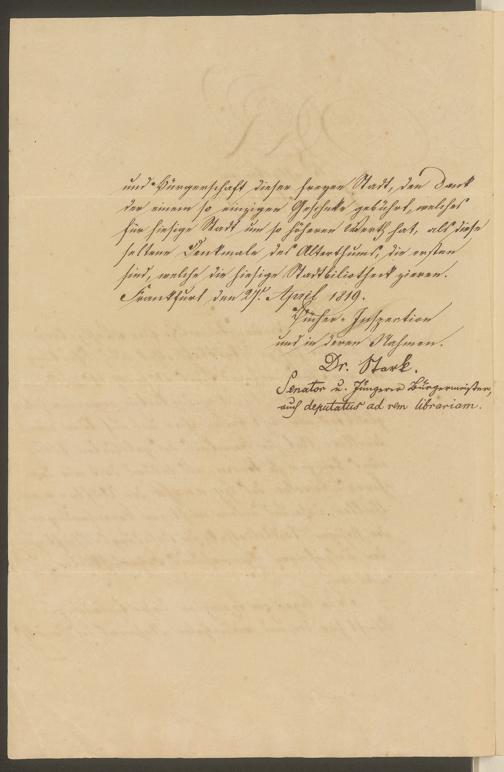 und Bürgerschaft dieser freyen Stadt, den Dank
der einem so einzigen Geschenke gebührt, welches
für hiesige Stadt um so höheren Werth hat, als diese
seltene Denkmale des Alterthums, die ersten
sind, welche die hiesige Stadtbibliothek zieren.
Frankfurt den 27. April 1819.
Bücher-Inspection
und in deren Nahmen.
Dr. Stark.
Senator u. Jüngerer Bürgermeister,
auch deputatus ad rem librariam.